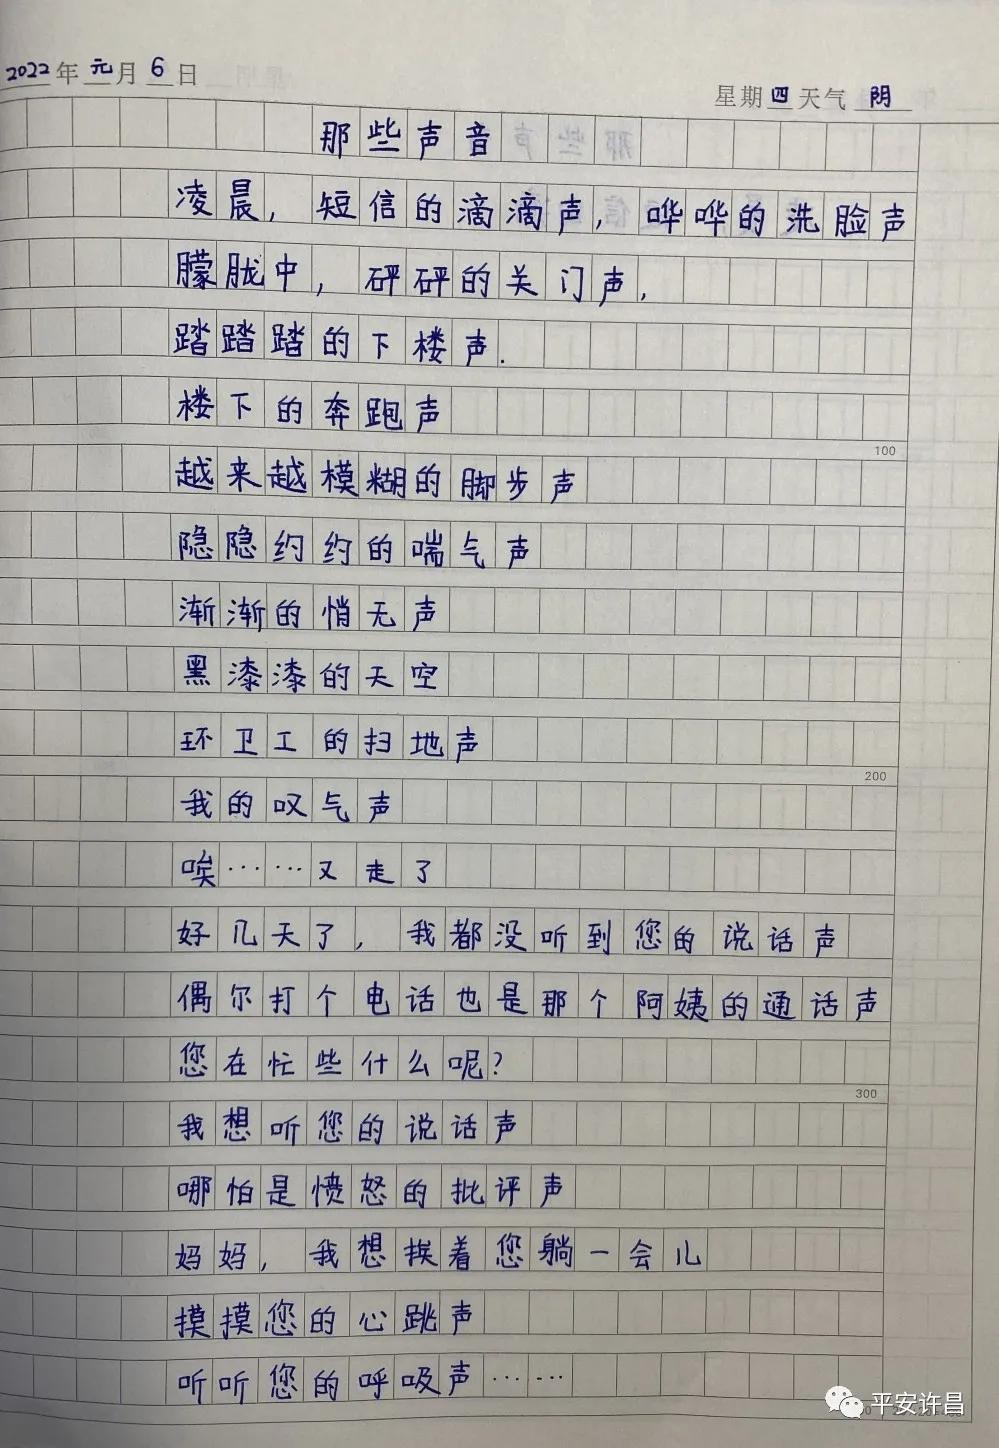 2022年元月6日
星期四天气阴
那些声音
凌晨，短信的滴滴声，哗哗的洗脸声
朦胧中，砰砰的关门声，
踏踏踏的下楼声.
楼下的奔跑声
100
越来越模糊的脚步声
隐隐约约的喘气声
渐渐的悄无声
黑漆漆的天空
环卫工的扫地声
200
我的叹气声
唉……又走了
好几天了，我都没听到您的说话声
偶尔打个电话也是那个阿姨的通话声
您在忙些什么呢?
300
我想听您的说话声
哪怕是愤怒的批评声
妈妈，我想挨着您躺一会儿
摸摸您的心跳声
听听您的呼吸声……
平安许昌